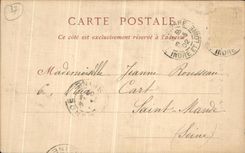 CARTE POSTALE
Ce côté est exclusivement réservé à l'adresse
Mademoiselle Jeanne Rousseau
6, Cart
Saint-Mandé
(Seine)
INDRE ET LOIRE